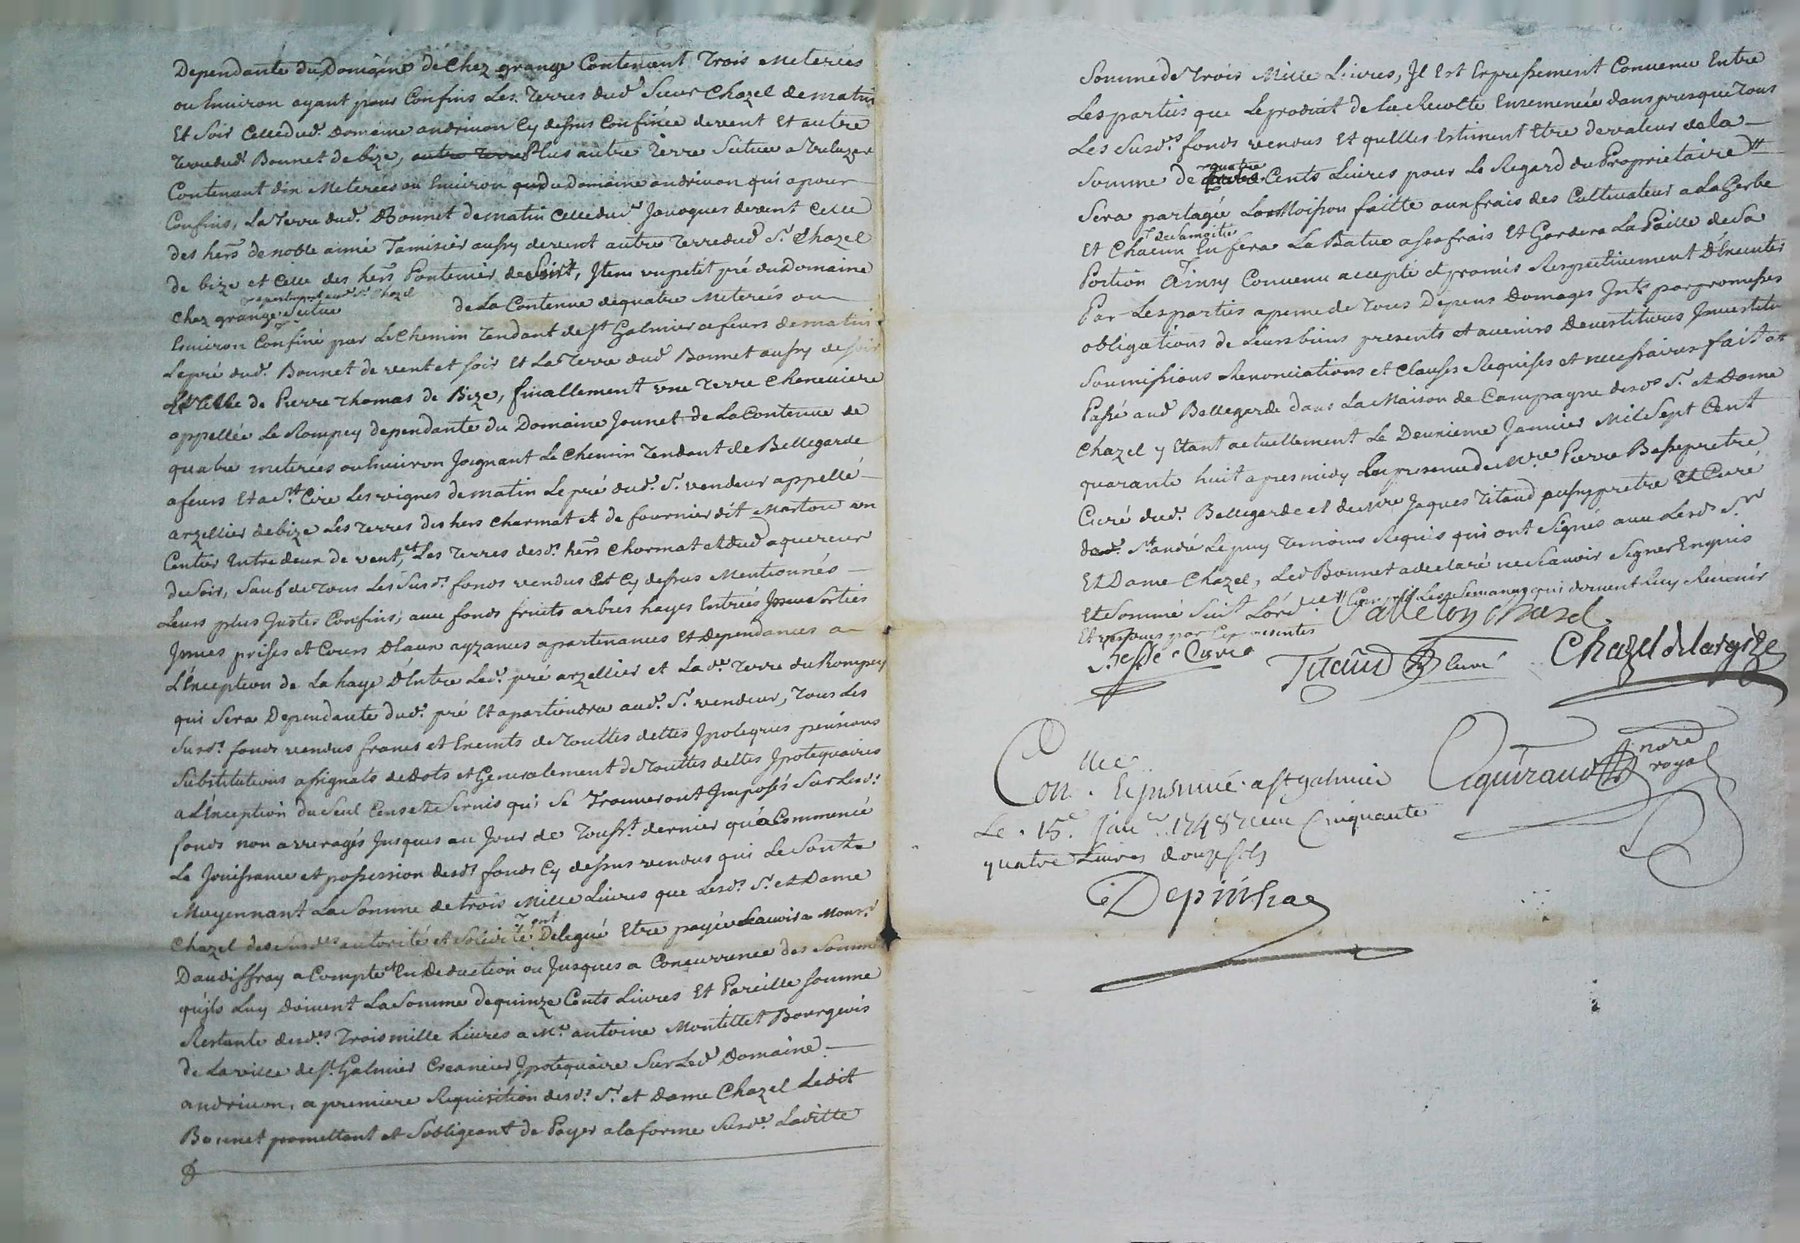 Dependante du Domaine de Chez grange Contenant Trois Meterées
ou Environ ayant pour Confins Les Terres dud. Sieur Chazel de matin
Et Soir Celle dud. Domaine andrivon Cy dessus Confinée de vent Et autre
Terre dud. Bonnet de bize, autre terre Plus autre Terre Scituée a
Contenant dix Meterées ou Environ dud. domaine andrivon qui a pour
Confins, La Terre dud. Bonnet de matin Celle du Sr. Javogues de vent Celle
des hers. de noble aimé Tamisier aussy de vent autre Terre dud. Sr. Chazel
de bize et Celle des hers. Pontenier de Soir, Item un petit pré du Domaine
apartenant aud. Sr. Chazel
Chez grange Scitué de La Contenue de quatre Meterées ou
Environ Confiné par Le Chemin Tendant de St. Galmier a feurs de matin
Le pré dud. Bonnet de vent et soir Et La Terre dud. Bonnet aussy de soir
Et Celle de Pierre Thomas de Bize, finallement une Terre Cheneviere
appellée Le Rompey dependante du Domaine Jounet de La Contenue de
quatre meterées ou Environ Joignant Le Chemin Tendant de Bellegarde
a feurs Et a St. Cire Les vignes de matin Le pré dud. Sr. vendeur appellé
arzellier de bize Les Terres des hers Charmat et de fournier dit Marton un
Centier Entre deux de vent, et Les Terres desd. hers. Charmat et dud. aquereur
du Soir, Sauf de Tous Les Susd. fonds vendus Et Cy dessus Mentionnés
Leurs plus Justes Confins; avec fonds fruits arbres hayes Entrées Issues Sorties
Prises et Cours D'Eaux ayzances apartenances Et Dependances a
L'Exception de La haye D'Entre Led. pré arzellier et La de. Terre du Rompey
qui Sera Dependante dud. pré Et apartiendra aud. Sr. vendeur, Tous Les
Susd. fonds vendus francs et Exempts de Touttes dettes Ipoteques pensions
Substitutions assignats de Dots et Generalement de Touttes dettes Ipotequaires
a L'Exception du Seul Cens et Servis qui Se Trouveront Imposés Sur Lesd.
fonds non arreragés Jusques au Jour de Touss.t dernier qu'a Commencé
La Jouissance et possession desd. fonds Cy dessus vendus qui Le Sont
Moyennant La Somme de trois Mille Livres que Lesd. Sr. et Dame
Chazel des susd. autorité et Solidité ont Delegué Etre payée Scavoir a Monsr.
Daudiffray a Compte et En Deduction ou Jusques a Concurrence des Sommes
qu'ils Luy doivent La Somme de quinze Cents Livres Et Pareille Somme
Restante desd. Trois mille Livres a Mr. antoine Montillet Bourgeois
de La ville de St. Galmier Creancier Ipotequaire Sur Led. Domaine
andrivon, a premiere Requisition desd. Sr. et Dame Chazel Ledit
Bonnet promettant et S'obligeant de Payer a la forme Susde. Laditte
Somme de Trois Mille Livres, Il Est Expressement Convenu Entre
Les parties que Le produit de La Recolte Ensemencée dans presque Tous
Les Susds. fonds vendus Et qu'elles Estiment Etre de valeur de la
quatre
Somme de Cents Livres pour Le Regard du Proprietaire
Sera partagée La Moisson faitte aux frais des Cultivateur a La Gerbe
de La moitié
Et Chacun En fera La Batue a Ses frais Et Gardera La Paille de Sa
Portion Ainsy Convenu accepté et promis Respectivement D'Executer
Par Les parties a peine de Tous Depens Domages Ints. par promesses
obligations de Leurs biens presents et avenirs Devestitures Investitures
Soumissions Renonciations et Clauses Requises et necessaires fait et
Passé aud. Bellegarde dans La Maison de Campagne desds. Sr. et Dame
Chazel y Etant actuellement Le Deuxieme Janvier Mil Sept Cent
quarante huit apres midy En presence de Mre. Pierre Besse pretre
Curé dud. Bellegarde et de Mre Jaques Titaud aussy pretre Et Curé
de St. andré Le puy Temoins Requis qui ont Signés avec Lesds. Sr.
Et Dame Chazel, Led. Bonnet a declaré ne Scavoir Signer Enquis
Et Sommé Suit
par Ces presentes
Valleton Chazel
Besse Curé
Titaud Curé
Chazel de largize
Con.llé Et insinué a St galmier
Le 15e. janvr. 1748 reçu Cinquante
quatre Livres douze sols
Aguiraud nore royal
Depinhac